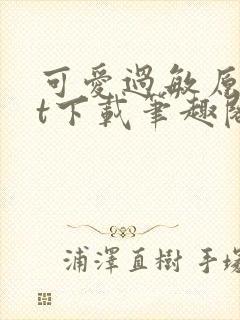 可愛過敏原
t下載筆趣閣
浦澤直樹 手塚